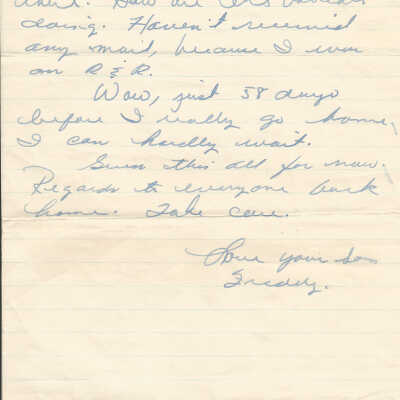 How are
doing. Haven't received
any mail, because I was
on R & R.
Wow, just 58 days
before I really go home,
I can hardly wait.
Guess this all for now.
Regards to everyone back
home. Take care.
Love your son
Freddy.